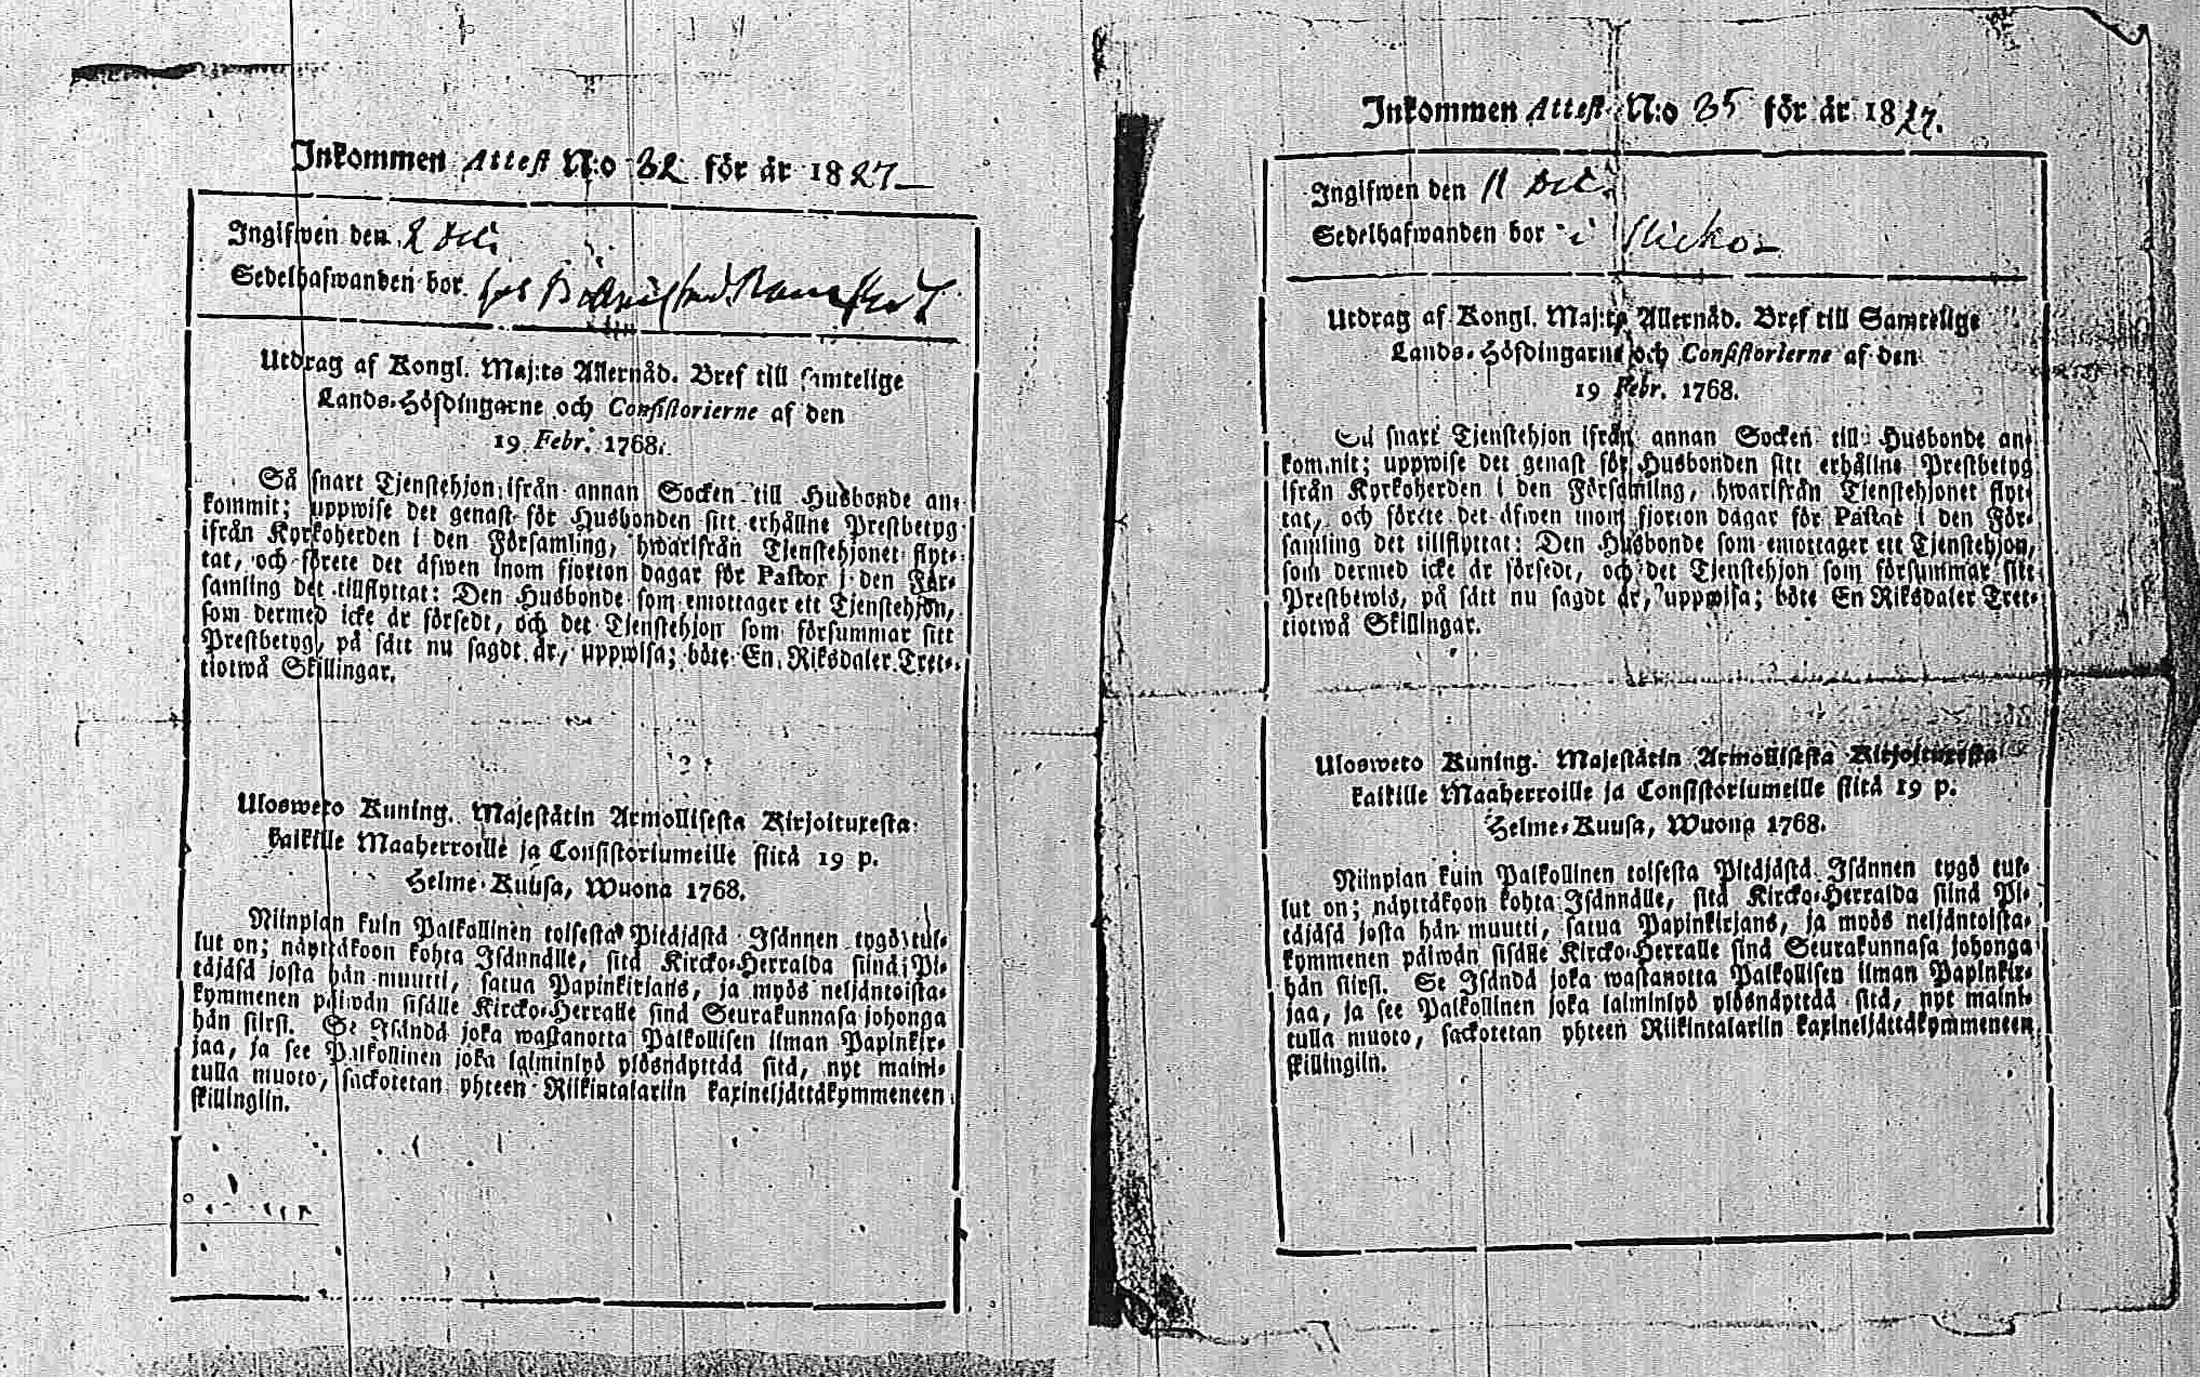 Inkommen Attest N:o 32 för år 1827
Ingifwen den 2 Dec.
Sedelhafwanden bor hos
Utdrag af Kongl. Maj:ts Allernåd. Bref till samtelige
Lands-Höfdingarne och Consistorierne af den
19 Febr. 1768.
Så snart Tjenstehjon ifrån annan Socken till Husbonde an-
kommit; uppwise det genast för Husbonden sitt erhållne Prestbetyg
ifrån Kyrkoherden i den Församling, hwarifrån Tjenstehjonet flyt-
tat, och förete det äfwen inom fjorton dagar för Pastor i den För-
samling det tillflyttat: Den Husbonde som emottager ett Tjenstehjon,
som dermed icke är försedt, och det Tjenstehjon som försummar sitt
Prestbetyg, på sätt nu sagdt är, uppwisa; böte En Riksdaler Tret-
tiotwå Skillingar.
Uloswero Kuning. Majestätin Armollisesta Kirjoituxesta
kaikille Maaherroille ja Consistoriumeille siitä 19 p.
Helme-Kuusa, Wuona 1768.
Niinpian kuin Palkollinen toisesta Pitäjästä Isännen tygö tul-
lut on; näyttäkoon kohta Isännälle, sitä Kircko-Herralda siinä Pi-
täjäsä josta hän muutti, saatua Papinkirjans, ja myös neljäntoista-
kymmenen päiwän sisälle Kircko-Herralle sinä Seurakunnasa johonga
hän siirsi. Se Isändä joka wastanotta Palkollisen ilman Papinkir-
jaa, ja see Palkollinen joka laiminlyö ylösnäyttää sitä, nyt maini-
tulla muoto, sackotetan yhteen Riikintalariin kaxineljättäkymmeneen
skillingiin.
Inkommen Attest N:o 35 för år 1827.
Ingifwen den 11 Dec.
Sedelhafwanden bor i
Utdrag af Kongl. Maj:ts Allernåd. Bref till Samtelige
Lands-Höfdingarne och Consistorierne af den
19 Febr. 1768.
Så snart Tjenstehjon ifrån annan Socken till Husbonde an-
kommit; uppwise det genast för Husbonden sitt erhållne Prestbetyg
ifrån Kyrkoherden i den Församling, hwarifrån Tjenstehjonet flyt-
tat, och förete det äfwen inom fjorton dagar för Pastor i den För-
samling det tillflyttat: Den Husbonde som emottager ett Tjenstehjon,
som dermed icke är försedt, och det Tjenstehjon som försummar sitt
Prestbewis, på sätt nu sagdt är, uppwisa; böte En Riksdaler Tret-
tiotwå Skillingar.
Uloswero Kuning. Majestätin Armollisesta Kirjoituxesta
kaikille Maaherroille ja Consistoriumeille siitä 19 p.
Helme-Kuusa, Wuona 1768.
Niinpian kuin Palkollinen toisesta Pitäjästä Isännen tygö tul-
lut on; näyttäkoon kohta Isännälle, sitä Kircko-Herralda siinä Pi-
täjäsä josta hän muutti, saatua Papinkirjans, ja myös neljäntoista-
kymmenen päiwän sisälle Kircko-Herralle sinä Seurakunnasa johonga
hän siirsi. Se Isändä joka wastanotta Palkollisen ilman Papinkir-
jaa, ja see Palkollinen joka laiminlyö ylösnäyttää sitä, nyt maini-
tulla muoto, sackotetan yhteen Riikintalariin kaxineljättäkymmeneen
skillingiin.